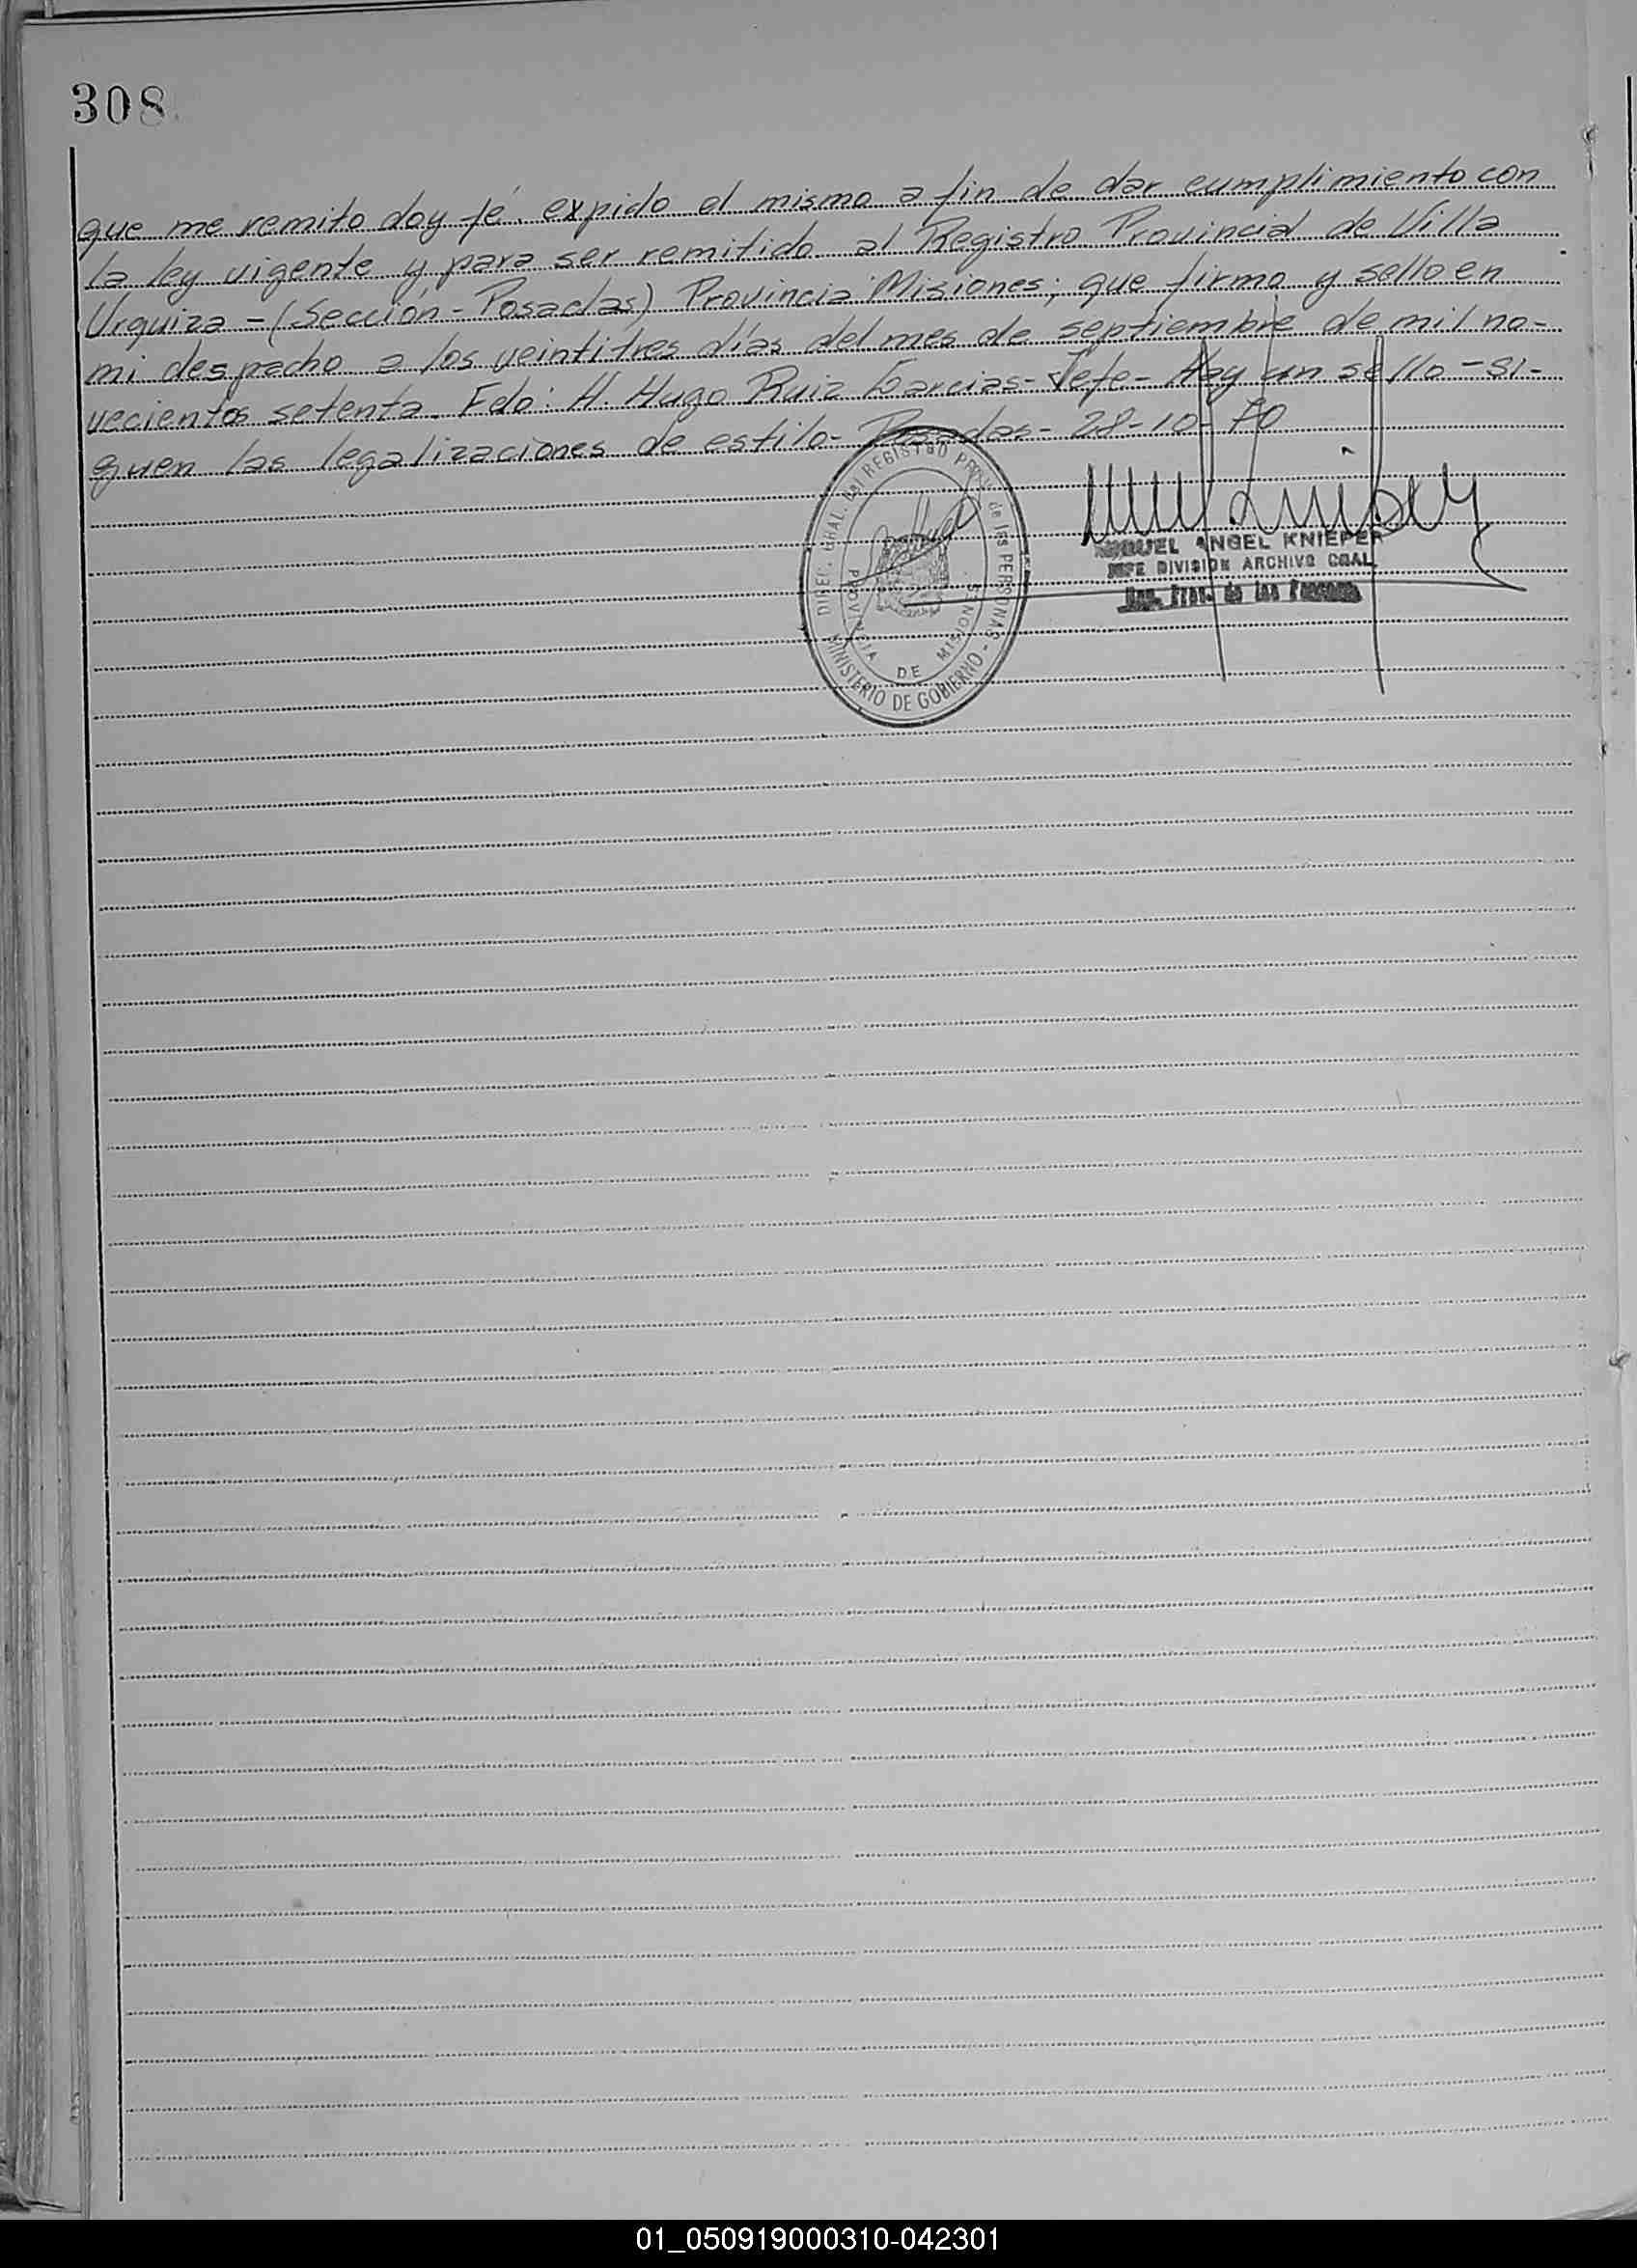 308
que me remito doy fé. expido el mismo a fin de dar cumplimiento con
la ley vigente y para ser remitido al Registro Provincial de Villa
Urquiza - (Sección - Posadas) Provincia Misiones; que firmo y sello en
mi despacho a los veintitres días del mes de septiembre de mil no-
vecientos setenta. Fdo: H. Hugo Ruiz Garcias - Jefe - Hay un sello - si-
guen las legalizaciones de estilo - Posadas - 28-10-70
DIREC. GRAL. del REGISTRO PROV. de las PERSONAS
MINISTERIO DE GOBIERNO
PROVINCIA DE MISIONES
MIGUEL ANGEL KNIEPER
JEFE DIVISION ARCHIVO GRAL.
Reg. Prov. de las Personas
01_050919000310-042301